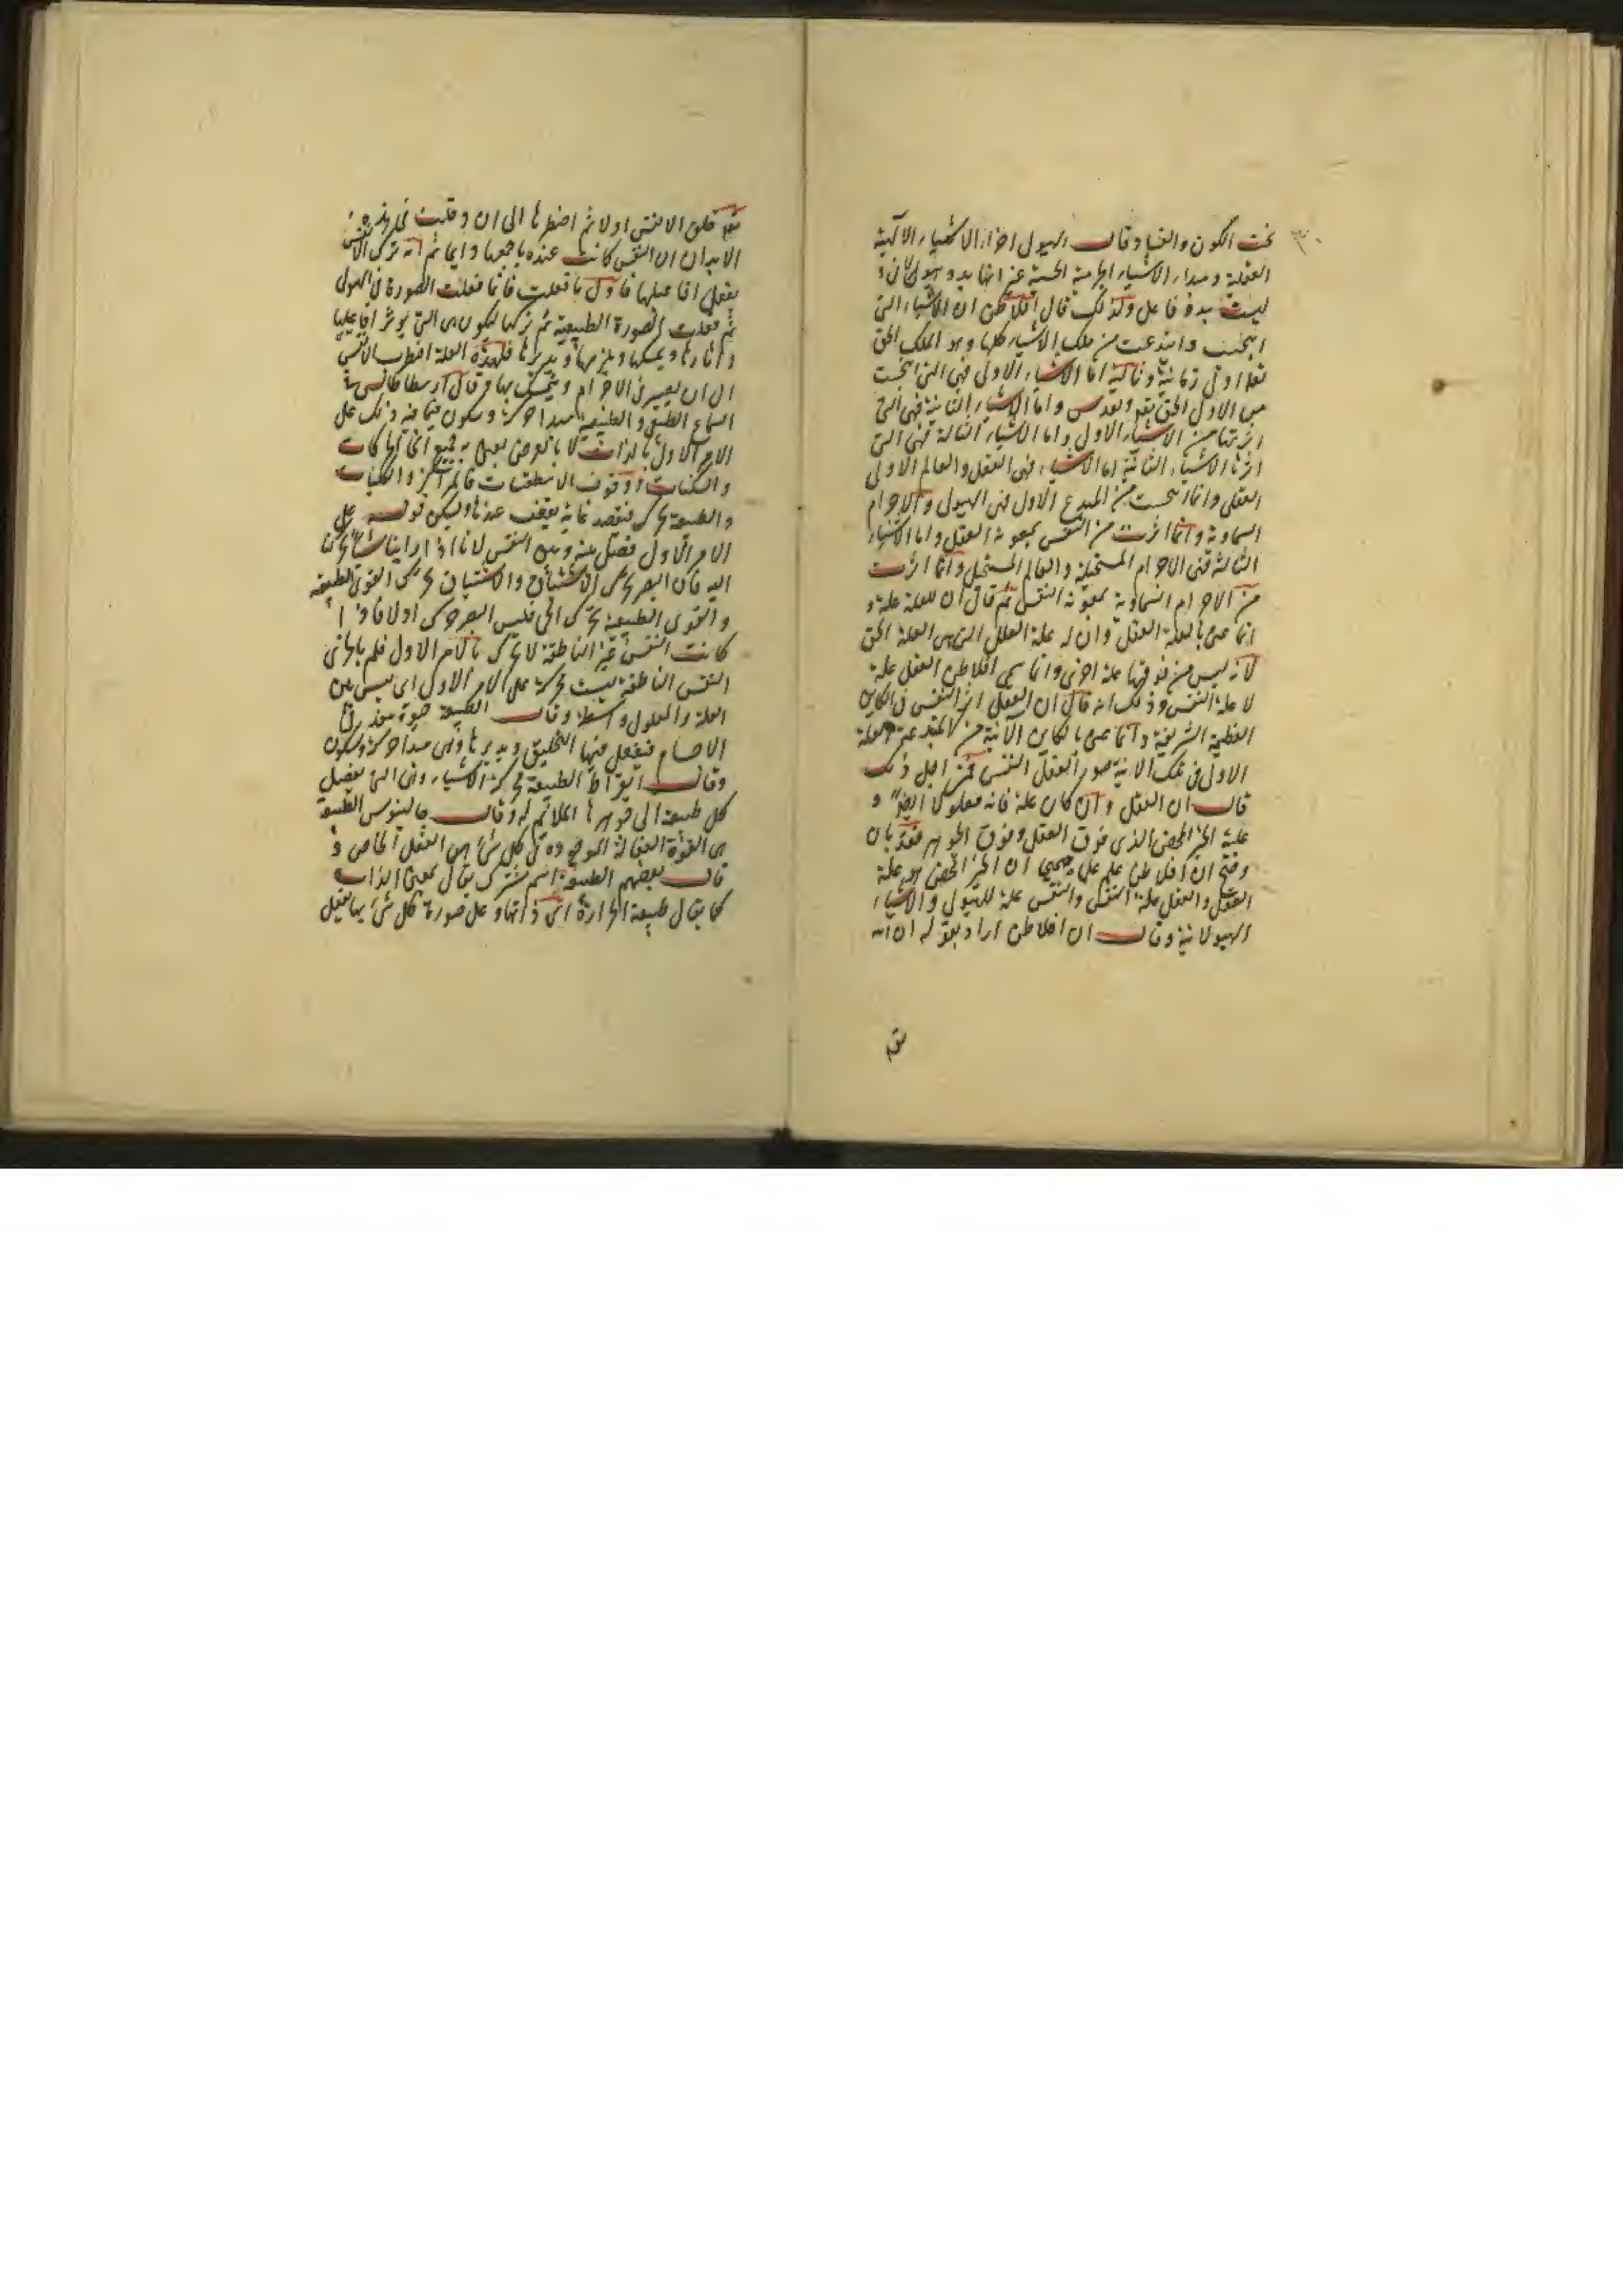 تحت الكون والفساد وقال الهيولى اخر الاشياء الالهية
العقلية ومبدأ الاشياء الجرمية الحسية غير انها بدو هيولانى و
ليست بدو فاعل ولذلك قال افلاطن ان الاشياء التى
انبجست وابتدعت من ملك الاشياء كلها وهو الملك الحق
اول وثانية وثالثة اما الاشياء الاولى فهى التى انبجست
من الاول الحق تعو وتقدس واما الاشياء الثانية فهى التى
اثرتها من الاشياء الاول واما الاشياء الثالثة فهى التى
اثرتها الاشياء الثانية اما الاشياء فهى العقل والعالم الاولى
العقلى وانما انبجست من المبدع الاول فهى الهيولى والاجرام
السماوية وانما اثرت من النفس بمعونة العقل واما الاشياء
الثالثة فهى الاجرام المستحيلة والعالم المستحيل وانما اثرت
من الاجرام السماوية بمعونة النفس ثم قال ان للعلة علة و
انما عنى بالعلة العقل وان له علة العلل التى هى العلة الحق
لانه ليس من فوقها علة اخرى وانما سمى افلاطن العقل علة
لا علة النفس وذلك انه قال ان العقل اثر النفس فى الكاين
العظيمة الشريفة وانما عنى بالكاين الانية من المبتدعة العلة
الاول فى تلك الانية صور العقل النفس فمن اجل ذلك
قال ان العقل وان كان علة فانه معلول ايضا و
علية الخير المحض الذى فوق العقل وفوق الجوهر فقد بان
وضح ان افلاطن علم علم يقينى ان الخير المحض هو علة
العقل والعقل علة النفس والنفس علة للهيولى والاشياء
الهيولانية وقال ان افلاطن اراد بقوله ان الله
خلق الانفس اولا ثم اضطرها الى ان دخلت فى هذه
الابدان ان النفس كانت عنده باجمعها دايما ثم انه ترك الانفس
يفعل افاعيلها فاول ما فعلت فانما فعلت الصورة فى الهيولى
ثم فعلت الصورة الطبيعية ثم تركها ليكون هى التى يوثر افاعيلها
واثارها ويمسكها ويلزمها ويدبرها فلهذه العلة اضطرب الانفس
الى ان يصير فى الاجرام ويتمسك بها وقال ارسطاطاليس فى
السماع الطبيعى والطبيعية مبدأ حركة وسكون فيما فيه وذلك على
الامر الاول بالذات لا بالعرض يعنى به جميع انحا الحركات
والسكنات ووقوف الاسطقسات فالمراكز والكليات
والطبيعة تحرك فتقصد غاية يقف عندها وليكن قوله على
الامر الاول فصل بينه وبين النفس لانا اذا راينا شيئا تحركنا
اليه فان البصر تحرك الاشتياق والاشتياق تحرك القوى الطبيعة
والقوى الطبيعية تحرك الحى فليس البصر حرك اولا فاذا
كانت النفس غير الناطقة لا تحرك بالامر الاول فلم بالحرى
النفس الناطقة ليست محركة على الامر الاول اى ليس بين
العلة والمعلول واسطة وقال الطبيعة حيوة ينفد فى
الاجسام فيفعل فيها التخليق ويدبرها وهى مبدأ حركة وسكون
وقال ابقراط الطبيعة محركة الاشياء وهى التى يفصل
كل طبيعة الى جوهرها الملائم له وقال جالينوس الطبيعة
هى القوة الفعالة الموجودة فى كل شئ هى العقل الخاص و
قال بعضهم الطبيعة اسم مشترك يقال بمعنى الذات
كما يقال طبيعة الحرارة اى ذاتها وعلى صورة كل شئ بها يفعل